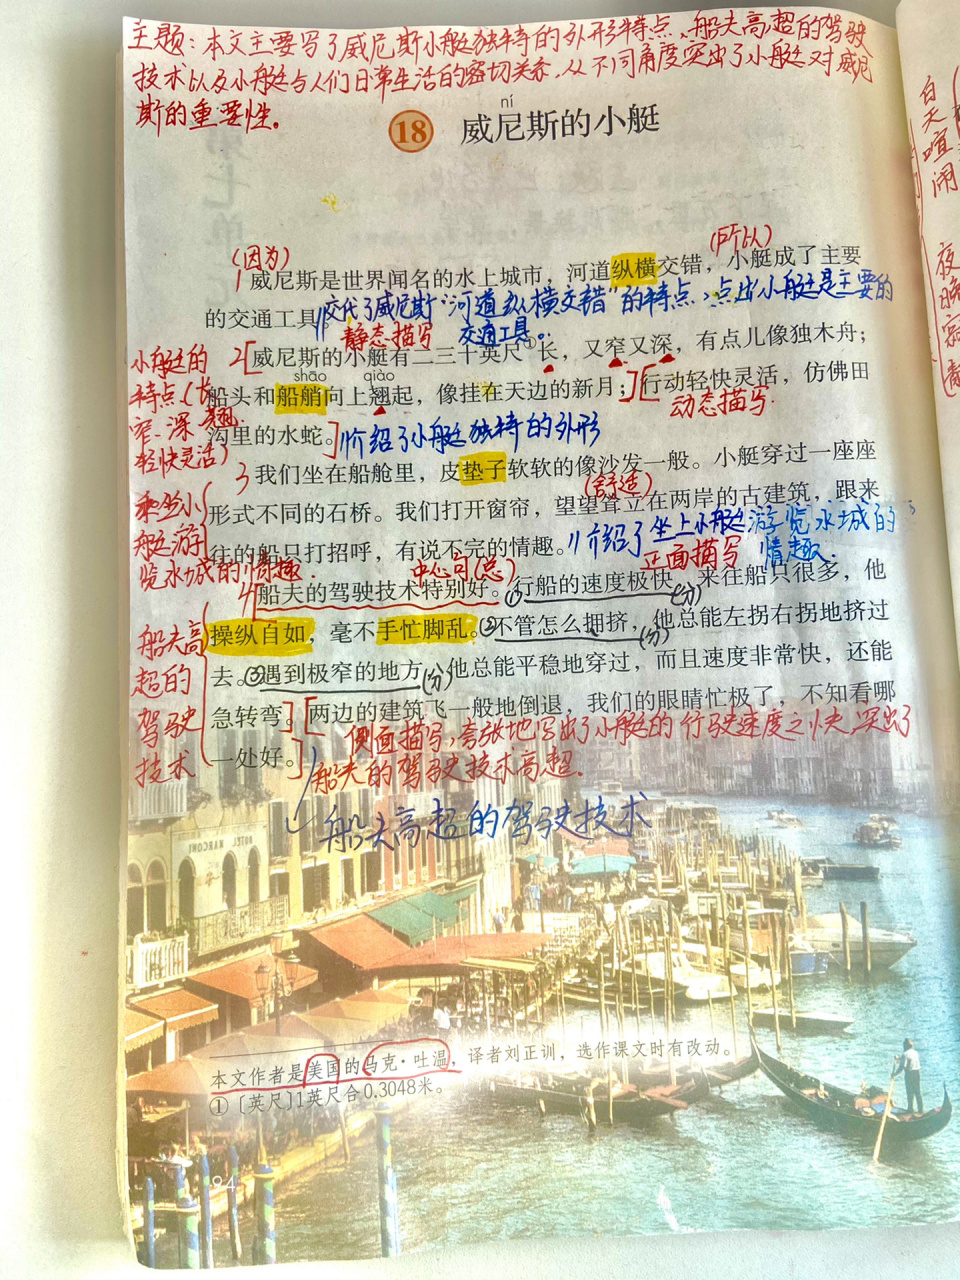 主题:本文主要写了威尼斯小艇独特的外形特点、船夫高超的驾驶
技术以及小艇与人们日常生活的密切关系,从不同角度突出了小艇对威尼
斯的重要性。
ní
18 威尼斯的小艇
(因为)
(所以)
1 威尼斯是世界闻名的水上城市,河道纵横交错,小艇成了主要
的交通工具。
交代了威尼斯“河道纵横交错”的特点,点出小艇是主要的
交通工具。
静态描写
2[威尼斯的小艇有二三十英尺①长,又窄又深,有点儿像独木舟;
shāo qiào
船头和船艄向上翘起,像挂在天边的新月;][行动轻快灵活,仿佛田
动态描写
沟里的水蛇。]
介绍了小艇独特的外形
小艇的
特点(长
窄、深、翘
轻快灵活)
3 我们坐在船舱里,皮垫子软软的像沙发一般。小艇穿过一座座
(舒适)
形式不同的石桥。我们打开窗帘,望望耸立在两岸的古建筑,跟来
往的船只打招呼,有说不完的情趣。
介绍了坐上小艇游览水城的
情趣.
正面描写
乘坐小
艇游
览水城的情趣.
中心句(总)
4 船夫的驾驶技术特别好。①行船的速度极快(分),来往船只很多,他
操纵自如,毫不手忙脚乱。②不管怎么拥挤,(分)他总能左拐右拐地挤过
去。③遇到极窄的地方(分),他总能平稳地穿过,而且速度非常快,还能
急转弯。][两边的建筑飞一般地倒退,我们的眼睛忙极了,不知看哪
一处好。]
侧面描写,夸张地写出了小艇的行驶速度之快,突出了
船夫的驾驶技术高超.
船夫高
超的
驾驶
技术
船夫高超的驾驶技术
HOTEL MARCONI
本文作者是美国的马克·吐温,译者刘正训,选作课文时有改动。
①〔英尺〕1英尺合0.3048米。
94
白天喧闹
夜晚寂静